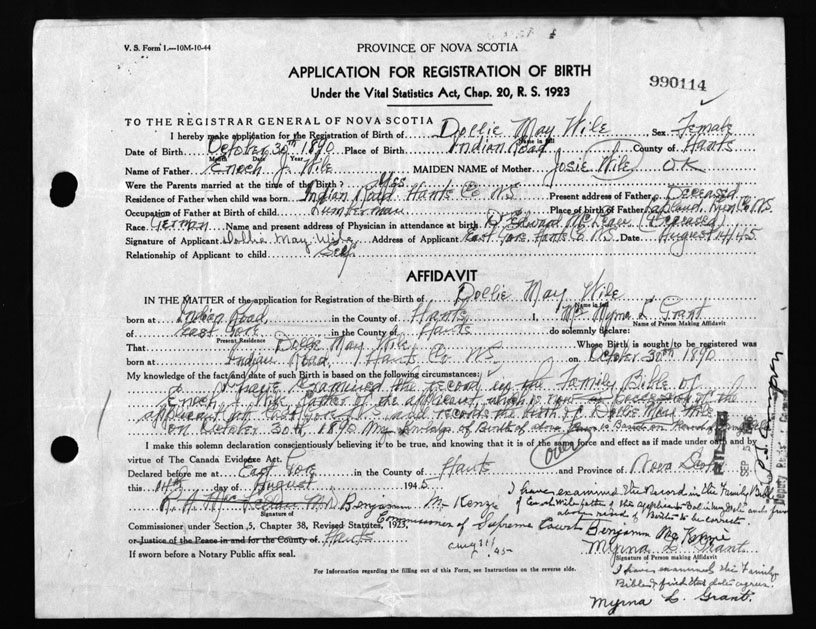 V. S. Form 1.—10M-10-44
PROVINCE OF NOVA SCOTIA
APPLICATION FOR REGISTRATION OF BIRTH
990114
Under the Vital Statistics Act, Chap. 20, R. S. 1923
TO THE REGISTRAR GENERAL OF NOVA SCOTIA
I hereby make application for the Registration of Birth of Dollie May Wile Sex Female
Name in full
Date of Birth October 30th 1890 Place of Birth Indian Road County of Hants
Month Date Year
Name of Father Enoch J. Wile MAIDEN NAME of Mother Josie (Wile) OK
Were the Parents married at the time of the Birth? Yes
Residence of Father when child was born Indian Road Hants Co NS Present address of Father Deceased
Occupation of Father at Birth of child Lumberman Place of Birth of Father Lapland, Co NS.
Race German Name and present address of Physician in attendance at birth Dr. Edward (Deceased)
Signature of Applicant Dollie May Wile Address of Applicant East Gore Hants Co NS. Date August 14/45.
Relationship of Applicant to child Self
AFFIDAVIT
IN THE MATTER of the application for Registration of the Birth of Dollie May Wile
Name in full
born at Indian Road in the County of Hants I, Mrs Myrna L Grant
Name of Person Making Affidavit
of East Gore in the County of Hants do solemnly declare:
Present Residence
That Dollie May Wile Whose Birth is sought to be registered was
born at Indian Road, Hants Co NS. on October 30th 1890
My knowledge of the fact and date of such Birth is based on the following circumstances:
I have Examined the record in the Family Bible of
Enoch J. Wile father of the applicant which is now in possession of the
applicant at East Gore N.S. and records the birth of Dollie May Wile
on October 30th 1890 My knowledge of Birth of above
(over)
I make this solemn declaration conscientiously believing it to be true, and knowing that it is of the same force and effect as if made under oath and by
virtue of The Canada Evidence Act.
Declared before me at East Gore in the County of Hants and Province of Nova Scotia
this 14th day of August 1945
Benjamin McKenzie
Signature of
Commissioner of Supreme Court
I have examined the Record in the Family Bible
Commissioner under Section 5, Chapter 38, Revised Statutes, 1923,
Benjamin McKenzie
or Justice of the Peace in and for the County of Hants
Aug 21/45-
Myrna L. Grant
Signature of Person making Affidavit
If sworn before a Notary Public affix seal.
I have examined this Family
Bible & find that dates agree.
For Information regarding the filling out of this Form, see Instructions on the reverse side.
Myrna L. Grant.